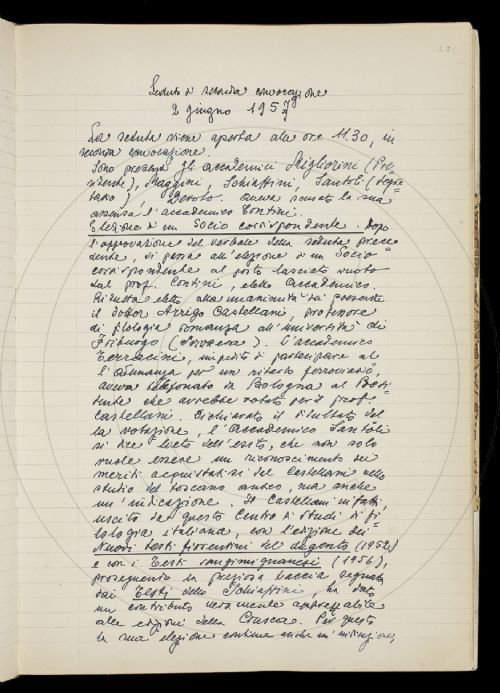 221
Seduta di seconda convocazione
2 giugno 1957
La seduta viene aperta alle ore 11.30, in
seconda convocazione.
Sono presenti gli accademici Migliorini (Pre=
sidente), Maggini, Schiaffini, Santoli (Segre=
tario), Devoto. Aveva scusato la sua
assenza l'accademico Contini.
Elezione di un Socio corrispondente. Dopo
l'approvazione del verbale della seduta prece=
dente, si passa all'elezione di un Socio
corrispondente al posto lasciato vuoto
dal prof. Contini, eletto Accademico.
Risulta eletto alla unanimità dei presenti
il dottor Arrigo Castellani, professore
di filologia romanza all'Università di
Friburgo (Svizzera). L'accademico
Terracini, impedito di partecipare al
l'adunanza per un ritardo ferroviario,
aveva telefonato da Bologna al Presi=
dente che avrebbe votato per il prof.
Castellani. Dichiarato il risultato del
la votazione, l'Accademico Santoli
si dice lieto dell'esito, che non solo
vuole essere un riconoscimento dei
meriti acquistatisi dal Castellani nello
studio del toscano antico, ma anche
un'indicazione. Il Castellani infatti
uscito da questo Centro di studi di fi=
lologia italiana, con l'edizione dei
Nuovi testi fiorentini del dugento (1952)
e con i Testi sangimignanesi (1956),
proseguendo la preziosa traccia segnata
dai Testi dello Schiaffini, ha dato
un contributo veramente apprezzabile
alle edizioni della Crusca. Per questo
la sua elezione contiene anche un'indicazione,